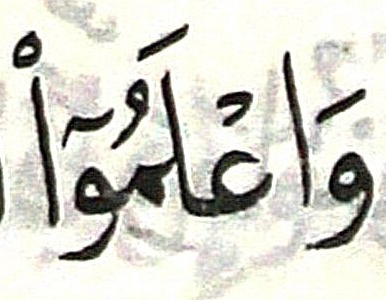 وَاعْلَمُوٓاْ